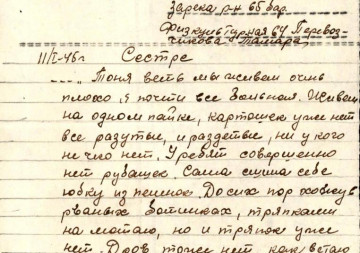 зарека р-н 65 бар.
Физкультурная 64 Перевоз-
чикова Тамара
11/I-45г Сестре
.... Тоня ведь мы живем очень
плохо, я почти все больная. Живем
на одном пайке, картошек уже нет
все разутые, и раздетые, ни у кого
ничего нет. У ребят совершенно
нет рубашек. Сама сшила себе
юбку из пеленок. До сих пор хожу в
рваных ботинках, тряпками
на мотаю, но и тряпок уже
нет. Дров тоже нет как встаю